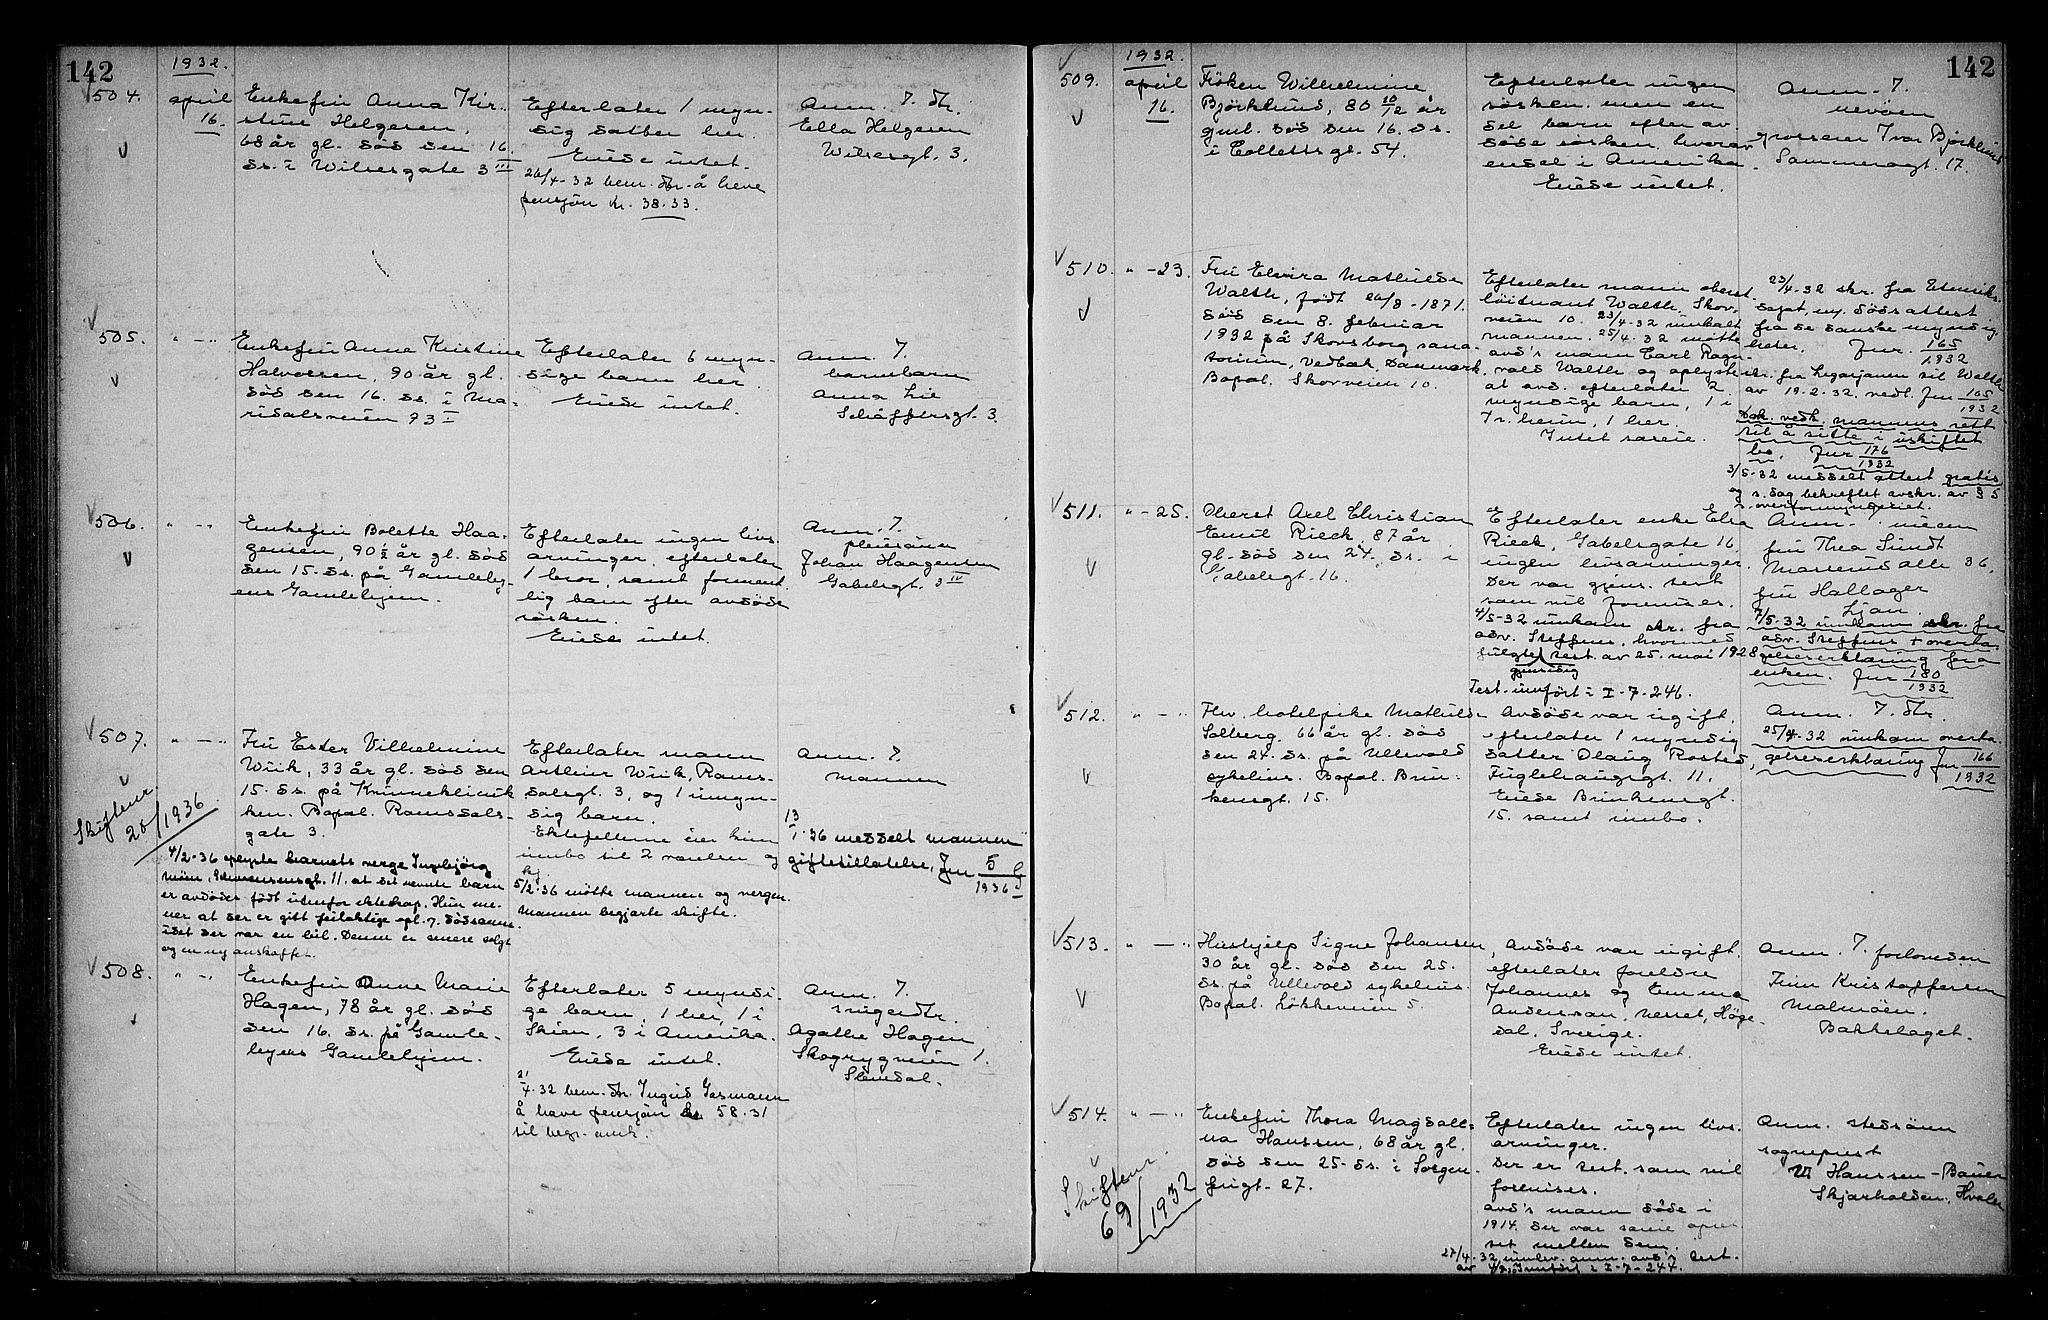 142
1932.
504.
april
16.
Enkefru Anna Kir-
stine Helgesen,
68 år gl. død den 16.
ds. i Wilsesgate 3 III
Efterlater 1 myn-
dig datter her.
Eiede intet.
26/4-32 bem. dtr. å heve
pensjon kr. 38.33.
Anm. 7. dtr.
Ella Helgesen
Wilsesgt. 3.
505.
" - "
Enkefru Anne Kristine
Halvorsen, 90 år gl.
død den 16. ds. i Ma-
ridalsveien 93 I
Efterlater 6 myn-
dige barn her.
Eiede intet.
Anm. 7.
barnebarn
Anna Lie
Schäffersgt. 3.
506.
" - "
Enkefru Bolette Haa-
gensen, 90 1/2 år gl. død
den 15. ds. på Gamleby-
ens Gamlehjem.
Efterlater ingen livs-
arvinger, efterlater
1 bror, samt forment-
lig barn efter avdøde
søsken.
Eiede intet.
Anm. 7.
pleiesønn
Johan Haagensen
Gabelsgt. 3 IV
507.
" - "
Fru Ester Vilhelmine
Wiik, 33 år gl. død den
15. ds. på Kvinneklinik-
ken. Bopæl. Ramsdals-
gate 3.
Efterlater mann
Arthur Wiik, Rams-
dalsgt. 3, og 1 umyn-
dig barn.
Ektefellene eier kun
innbo til 2 værelser og
kj.
5/2-36 møtte mannen og vergen.
Mannen begjærte skifte.
Anm. 7.
mannen
13
/1-36 meddelt mannen
giftetillatelse, Jnr 5
1936
Skiftenr.
26/1936
4/2-36 oplyste barnets verge Ingebjørg
Moen, 11. at det nevnte barn
er avdødes født utenfor ekteskap. Hun me-
ner at der er gitt feilaktige opl. 7. dødsanm.
idet der var en bil. Denne er senere solgt
og en ny anskaffet.
508.
" - "
Enkefru Anne Marie
Hagen, 78 år gl. død
den 16. ds. på Gamle-
byens Gamlehjem.
Efterlater 5 myndi-
ge barn, 1 her, 1 i
Skien, 3 i Amerika.
Eiede intet.
21
/4-32 bem. dtr. Ingrid Gasmann
å heve pensjon kr 58.31
til begr. omk.
Anm. 7.
svigerdtr.
Agathe Hagen
Skogrygveien 1.
Slemdal.
142
1932.
509.
april
16.
Frøken Wilhelmine
Bjørklund, 80 10/12 år
gml. død den 16. ds.
i Collettsgt. 54.
Efterlater ingen
søsken, men en
del barn efter av-
døde søsken, hvorav
endel i Amerika.
Eiede intet.
Anm. 7.
nevøen
grosserer Ivar Bjørklund
Sommerrogt. 17.
510.
" - 23.
Fru Elvira Mathilde
Walth, født 26/8-1871.
død den 8. februar
1932 på Skovsborg sana-
torium, Vedbæk, Danmark.
Bopæl. Skovveien 10.
Efterlater mann oberst-
løitnant Walth, Skov-
veien 10. 23/4-32 innkalt
mannen. 25/4-32 møtte
avd's mann Carl Ragn-
vald Walth og oplyste
at avd. efterlater 2
myndige barn, 1 i
Tr.heim, 1 her.
Intet særeie.
23/4-32 skr. fra Utenriks-
dept. m. dødsattest
fra de danske myndig-
heter. Jnr. 165
1932
skr. fra Legasjonen til Walth
av 19.2.32. vedl. Jnr 165
1932
Dok. vedk. mannens rett
til å sitte i uskiftet
bo. Jnr 176
1932
3/5-32 meddelt attest gratis
og s. dag bekreftet avskr. av § 5
t. overformynderiet.
511.
" - 25.
Oberst Axel Christian
Emil Rieck, 87 år
gl. død den 24. ds. i
Gabelsgt. 16.
Efterlater enke Elsa
Rieck, Gabelsgate 16,
ingen livsarvinger.
Der var gjens. test
som vil forevises.
4/5-32 innkom skr. fra
adv. Steffens, hvormed
fulgte gjensidig test. av 25. mai 1928
Test. innført i I-7-246.
Anm. 7. niesen
fru Thea Sundt
Mariendalle 36.
fru Hallager
Ljan.
7/5-32 innkom skr. fra
adv. Steffens + overta-
gelseserklæring fra
enken. Jnr 180
1932
512.
" - "
Fhv. hotelpike Mathilde
Solberg, 66 år gl. død
den 24. ds. på Ullevold
sykehus. Bopæl. Brin-
kensgt. 15.
Avdøde var ugift,
efterlater 1 myndig
datter Olaug Rosted,
Fuglehaugsgt. 11.
Eiede Brinkensgt.
15. samt innbo.
Anm. 7. dtr.
25/4-32 innkom overta-
gelseserklæring Jnr 166
1932
513.
" - "
Hushjelp Signe Johansen,
30 år gl. død den 25.
ds. på Ullevold sykehus.
Bopæl. Løkkeveien 5.
Avdøde var ugift,
efterlater foreldre
Johannes og Emma
Anderson, Høge-
dal, Sverige.
Eiede intet.
Anm. 7. forloveden
Finn Kristoffersen
Malmøen.
Bækkelaget.
514.
" - "
Enkefru Thora Magdale-
na Hanssen, 68 år gl.
død den 25. ds. i Sorgen-
frigt. 27.
Skiftenr.
69/1932
Efterlater ingen livs-
arvinger.
Der er test. som vil
forevises.
Avd's mann døde i
1914. Der var særeie opret-
tet mellem dem.
27/4-32 innlev. anm. avd's test.
av Innført i I-7-244.
Anm. stedsønn
sogneprest
Hanssen-Bauer
Skjærhalden, Hvaler